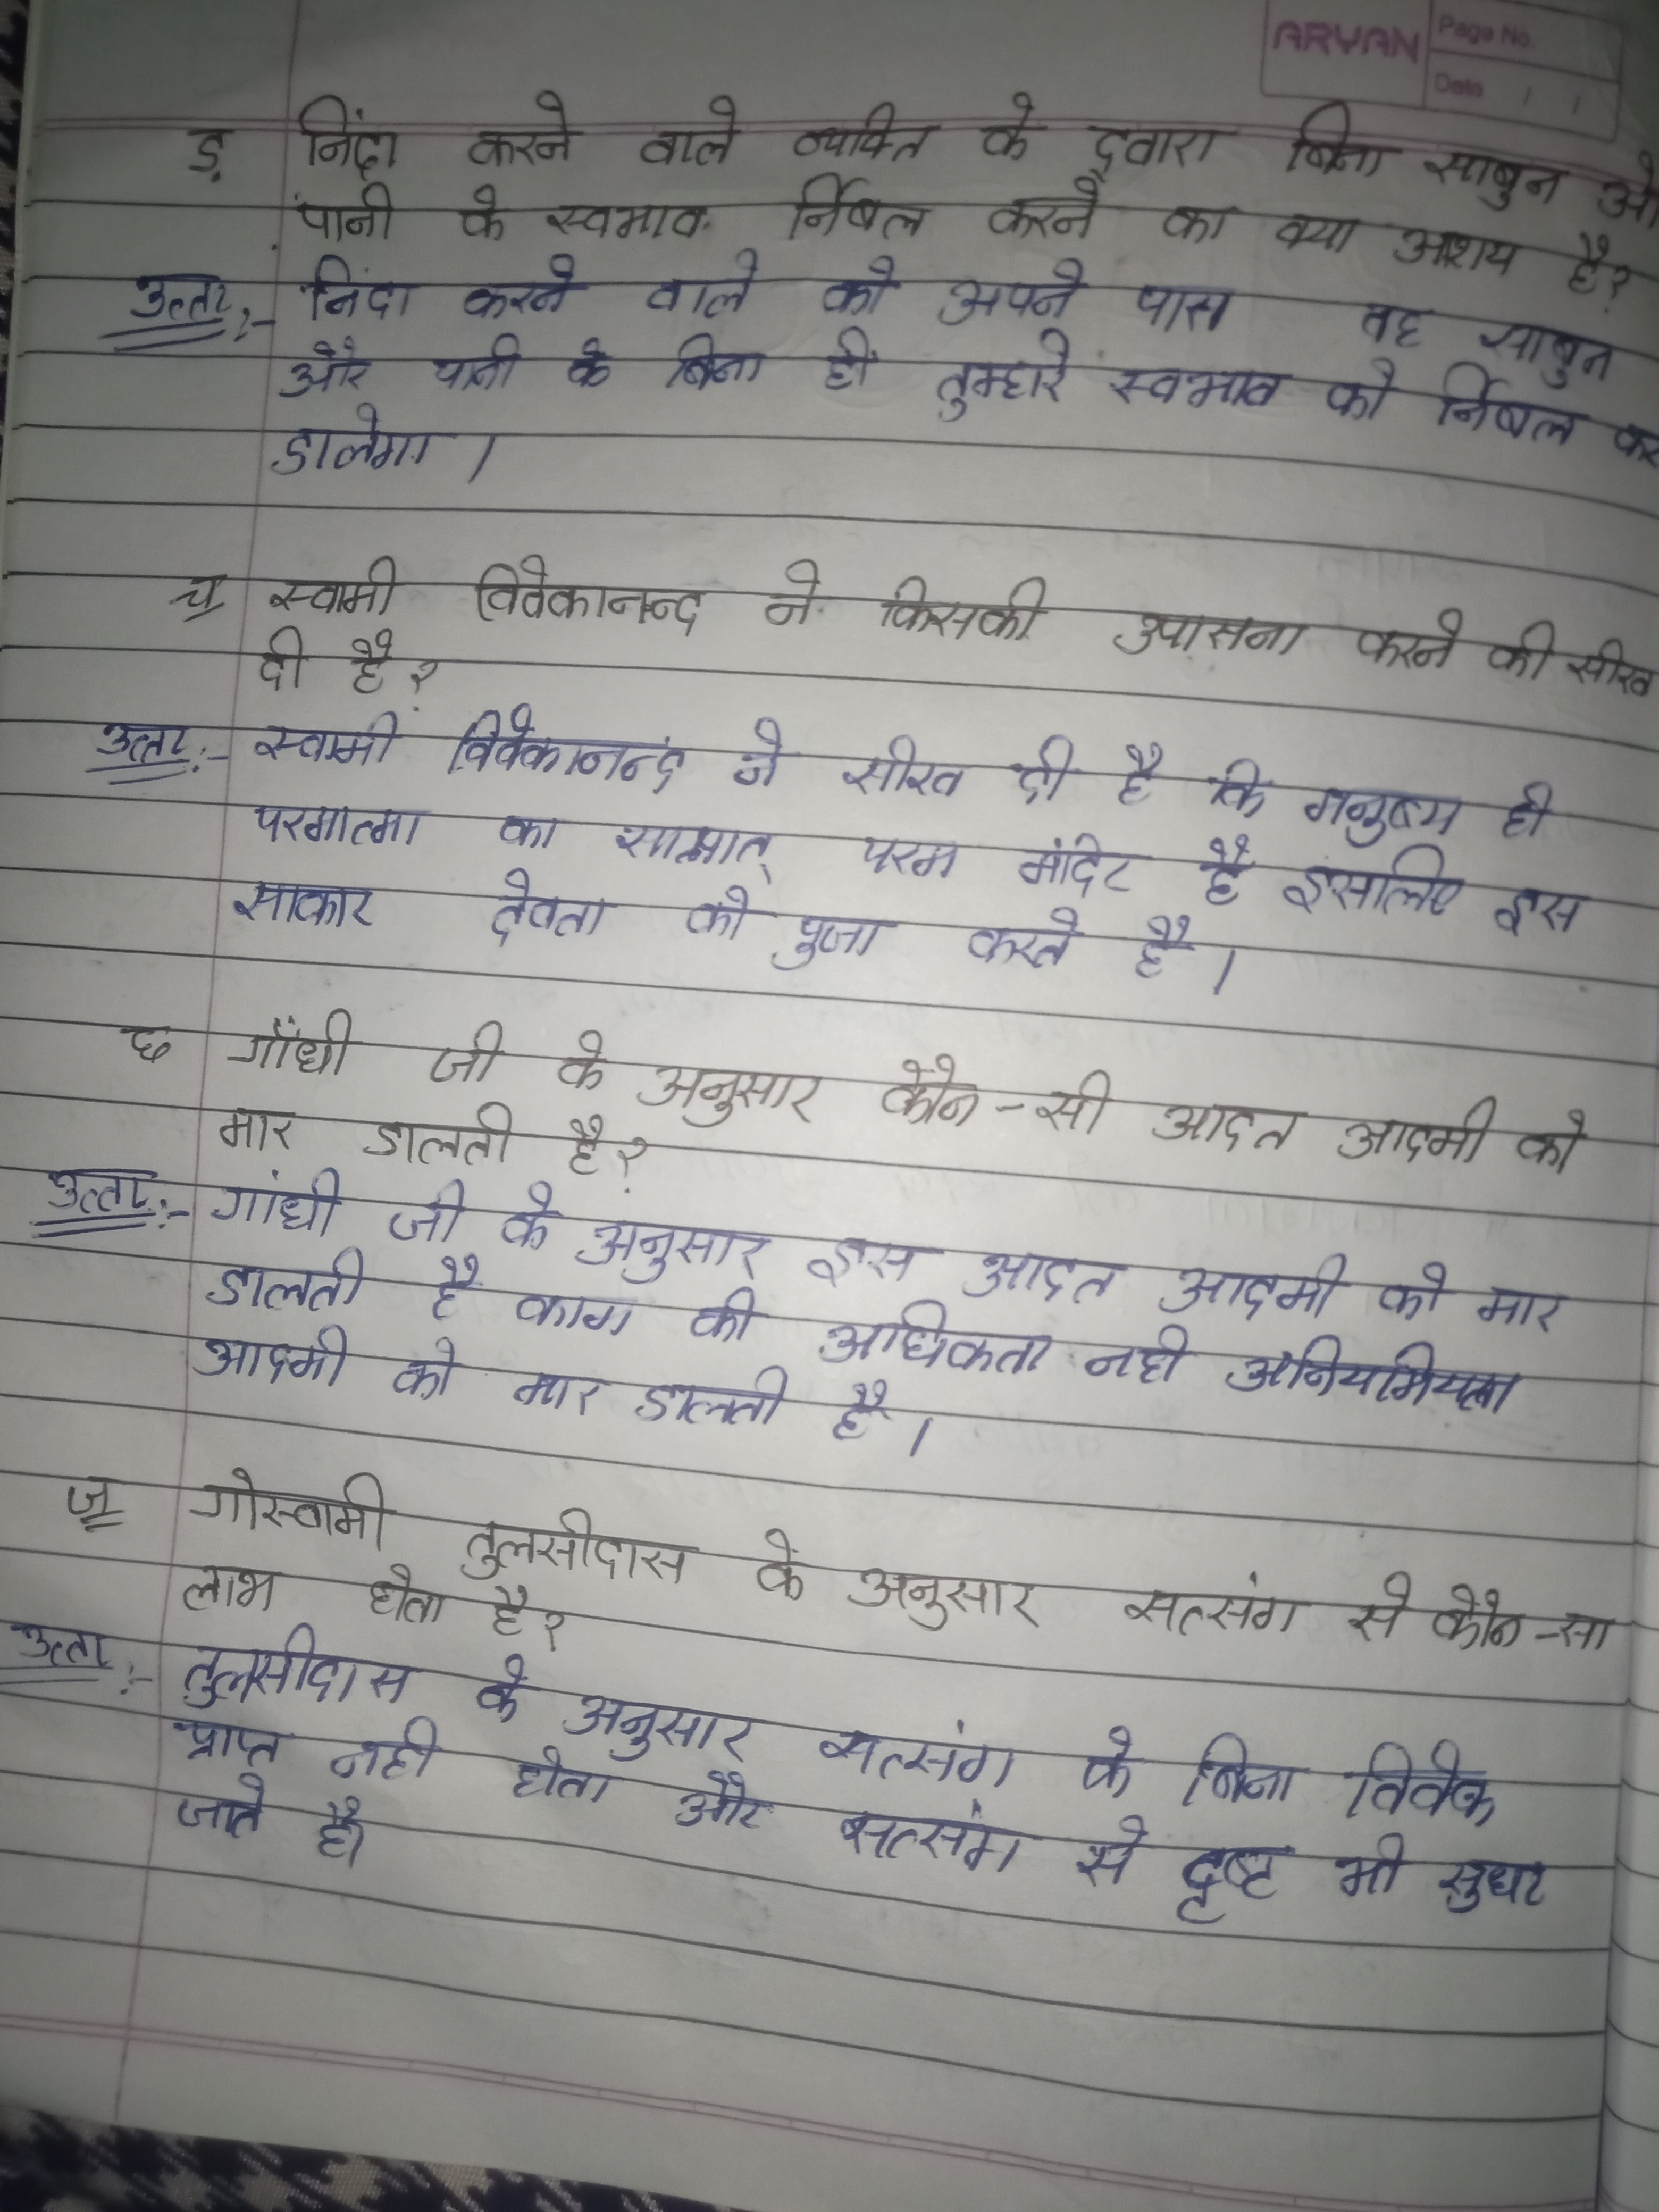 ARYAN
Page No.
Date / /
ड़ निंदा करने वाले व्यक्ति के द्वारा बिना साबुन औ
पानी के स्वभाव र्निबल करने का क्या आशय है?
उत्तर:- निंदा करने वाले को अपने पास वह साबुन
और पानी के बिना ही तुम्हारे स्वभाव को र्निबल कर
डालेगा।
च स्वामी विवेकानन्द ने किसकी उपासना करने की सीख
दी है?
उत्तर:- स्वामी विवेकानन्द ने सीख दी है कि मनुष्य ही
परमात्मा का साक्षात् परम मंदिर है इसलिए इस
साकार देवता की पुजा करते है।
छ गाँधी जी के अनुसार कौन-सी आदत आदमी को
मार डालती है?
उत्तर:- गांधी जी के अनुसार इस आदत आदमी को मार
डालती है काम की अधिकता नही अनियमियता
आदमी को मार डालती है।
ज गोस्वामी तुलसीदास के अनुसार सत्संग से कौन-सा
लाभ होता है?
उत्तर:- तुलसीदास के अनुसार सत्संग के बिना विवेक
प्राप्त नही होता और सत्संग से दृष्ट भी सुधर
जाते है।